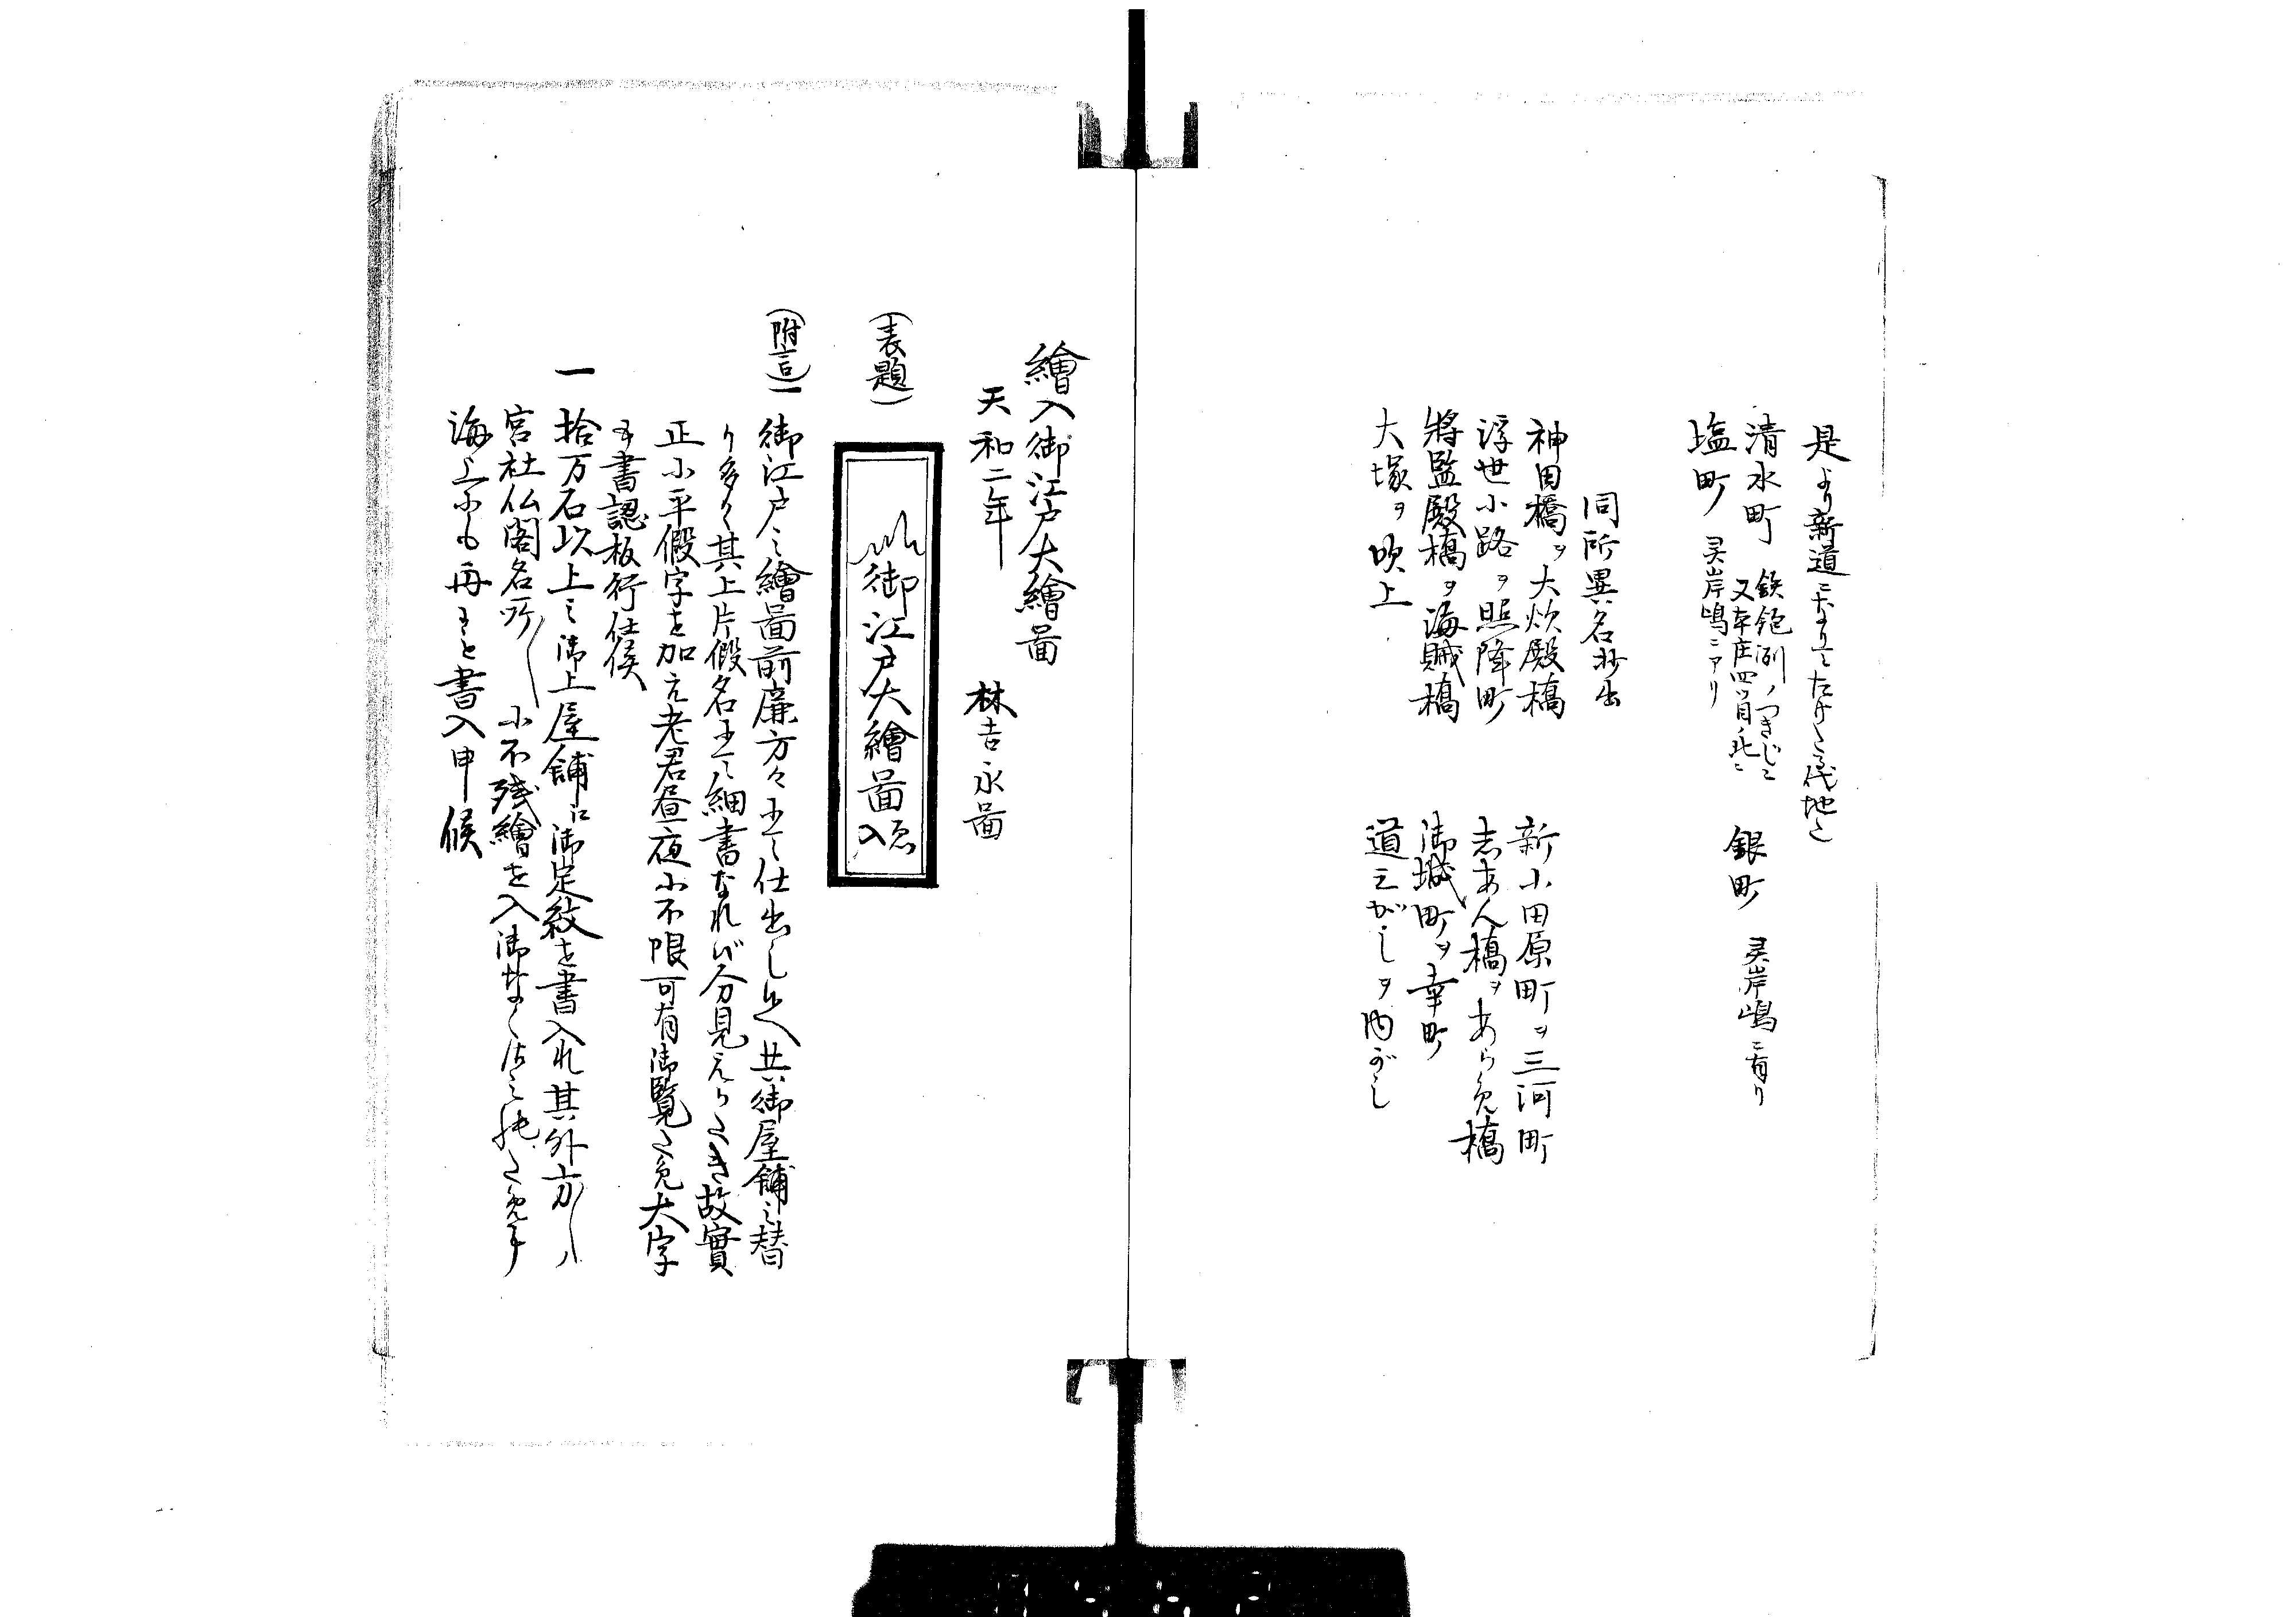 是より新道
清水町 鉄炮洲ノつきじニ
又本庄四ツ目ノ北ニ
銀町 灵岸嶋ニ有リ
塩町 灵岸嶋ニアリ
同所異名抄出
神田橋ヲ大炊殿橋
新小田原町ヲ三河町
浮世小路ヲ照降町
志あん橋ヲあらめ橋
將監殿橋ヲ海賊橋
御城町ヲ幸町
大塚ヲ吹上
道三がしヲ内がし
繪入御江戸大繪啚
天和二年 林吉永啚
(表題)
御江戸大繪啚 入
(附言)一 御江戸之繪啚前廉方々にて仕出し候へ共御屋舗之替
り多く其上片假名にて細書なれば分見えかたき故實
正小平假字を加え老君昼夜小不限可有御覧ため大字
書認板行仕候
一 拾万石以上之御上屋舗に御定紋を書入れ其外方〱ハ
宮社仏閣名所〱小不残繪を入御なくさみ
海上小も舟をと書入申候